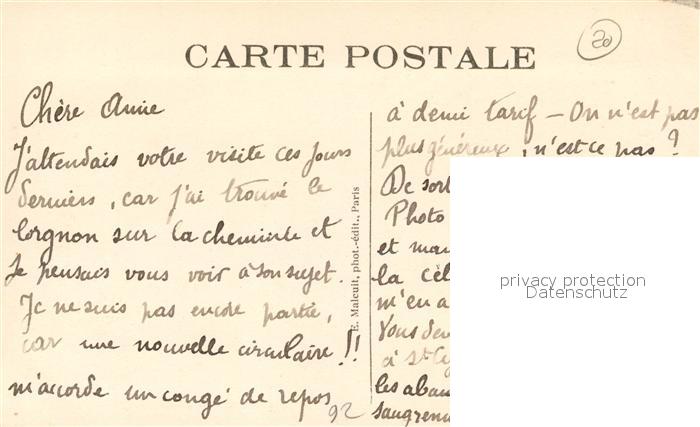 20
CARTE POSTALE
Chère Amie
J'attendais votre visite ces jours
derniers, car j'ai trouvé le
lorgnon sur la cheminée et
je pensais vous voir à son sujet.
Je ne suis pas encore partie,
car une nouvelle circulaire !!
m'accorde un congé de repos
92
E. Malcuit, phot.-édit., Paris
à demi tarif — On n'est pas
plus généreux, n'est ce pas ?
De sort
Photo
et mau
la cél
m'en a
Vous dev
à St Cy
les aban
saugrenu
privacy protection
Datenschutz